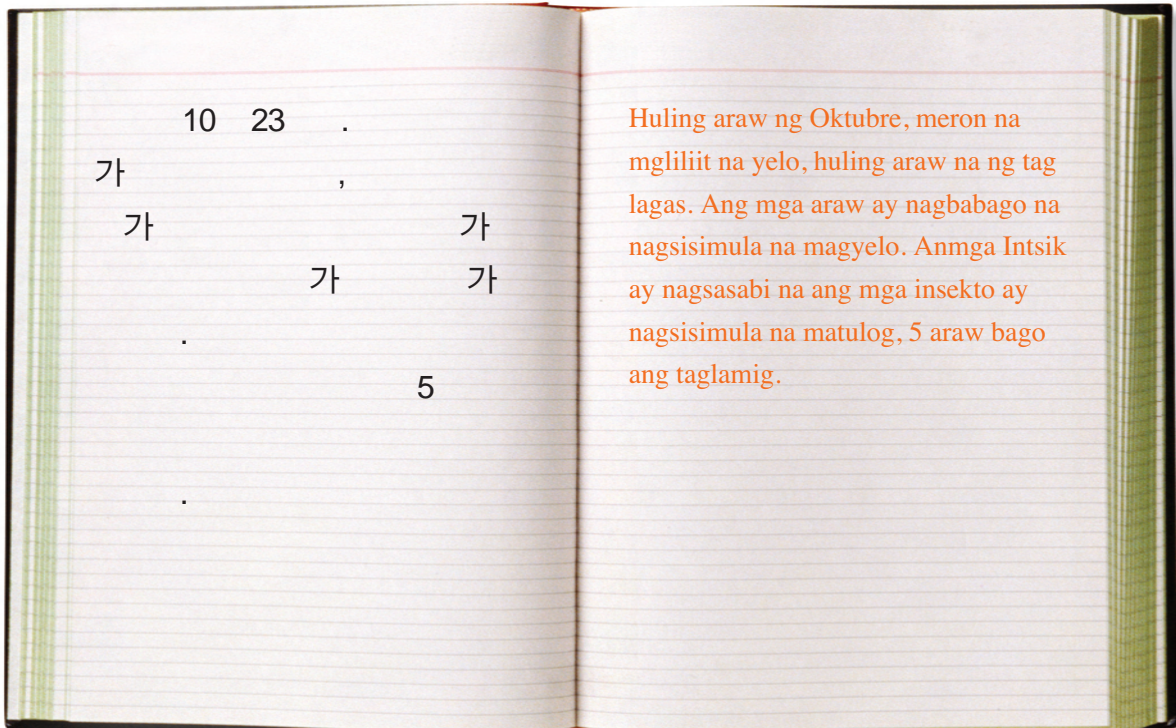 10 23 .
가 ,
가 가
가 가
.
5
.
Huling araw ng Oktubre, meron na
mgliliit na yelo, huling araw na ng tag
lagas. Ang mga araw ay nagbabago na
nagsisimula na magyelo. Anmga Intsik
ay nagsasabi na ang mga insekto ay
nagsisimula na matulog, 5 araw bago
ang taglamig.